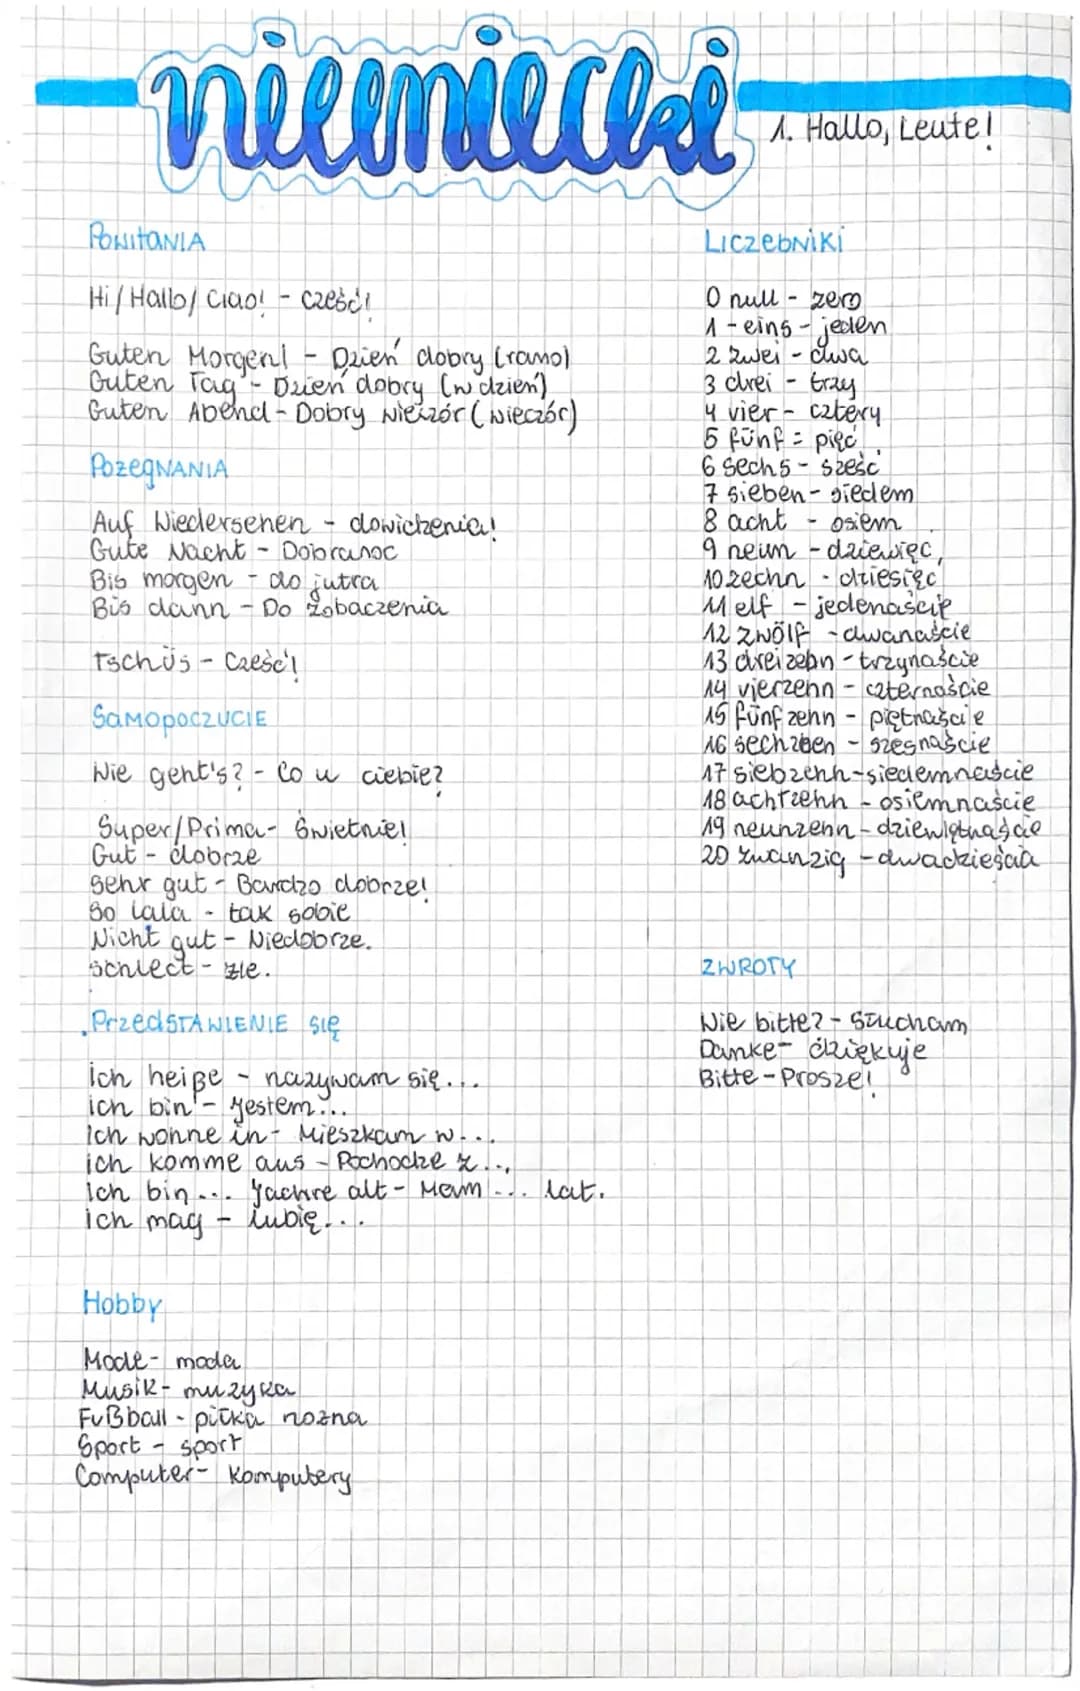 niemiecki
1. Hallo, Leute!
POWITANIA
Hi/Hallo/Ciao! - cześć!
Guten Morgen! - Dzień dobry (rano)
Guten Tag - Dzień dobry (w dzień)
Guten Abend - Dobry wieczór (wieczór)
POżEgNANIA
Auf Wiedersehen - dowidzenia!
Gute Nacht - Dobranoc
Bis morgen - do jutra
Bis dann - Do zobaczenia
Tschüs - Cześć!
SAMOPOCZUCIE
Wie geht's? - Co u ciebie?
Super/Prima - Świetnie!
Gut - dobrze
Sehr gut - Bardzo dobrze!
So lala - tak sobie
Nicht gut - Niedobrze.
Schlect - źle.
PrzedSTAWIENIE SIĘ
Ich heiße - nazywam się...
ich bin - Jestem...
Ich wohne in - Mieszkam w...
ich komme aus - Pochodzę z...
Ich bin... Jachre alt - Mam ... lat.
ich mag - Lubię...
Hobby
Mode - moda
Musik - muzyka
Fußball - piłka nożna
Sport - sport
Computer - Komputery
LICZEbNIKI
0 null - zero
1 - eins - jeden
2 zwei - dwa
3 drei - trzy
4 vier - cztery
5 fünf = pięć
6 sechs - sześć
7 sieben - siedem
8 acht - osiem
9 neun - dziewięć
10 zechn - dziesięć
11 elf - jedenaście
12 zwölf - dwanaście
13 dreizehn - trzynaście
14 vierzehn - czternaście
15 fünfzehn - piętnaście
16 sechzehen - szesnaście
17 siebzehn - siedemnaście
18 achtzehn - osiemnaście
19 neunzehn - dziewiętnaście
20 zwanzig - dwadzieścia
ZWROTY
Wie bitte? - Słucham
Danke - dziękuje
Bitte - Prosze!